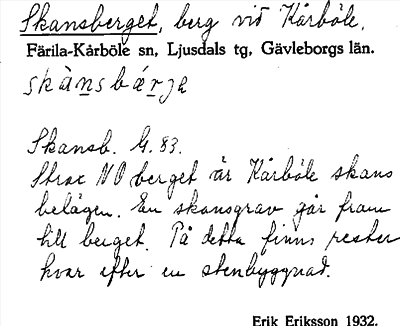 Skansberget, berg vid Kårböle,
Färila-Kårböle sn, Ljusdals tg, Gävleborgs län.
skànsbárja
Skansb. G. 83.
Strax NO berget är Kårböle skans
belägen. En skansgrav går fram
till berget. På detta finns rester
kvar efter en stenbyggnad.
Erik Eriksson 1932.